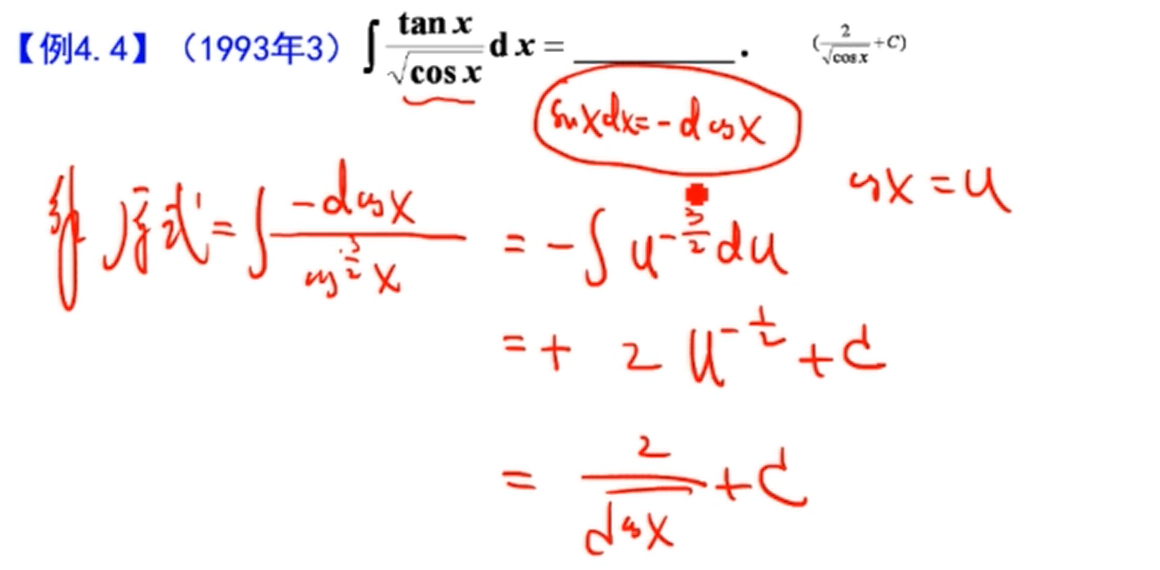 【例4.4】（1993年3）∫ tan x / √cos x d x = ________ . (2/√cos x + C)
sin x dx = - d cos x
cos x = u
解 原式 = ∫ -d cos x / cos^{3/2} x = - ∫ u^{-3/2} du
= + 2 u^{-1/2} + C
= 2 / √cos x + C